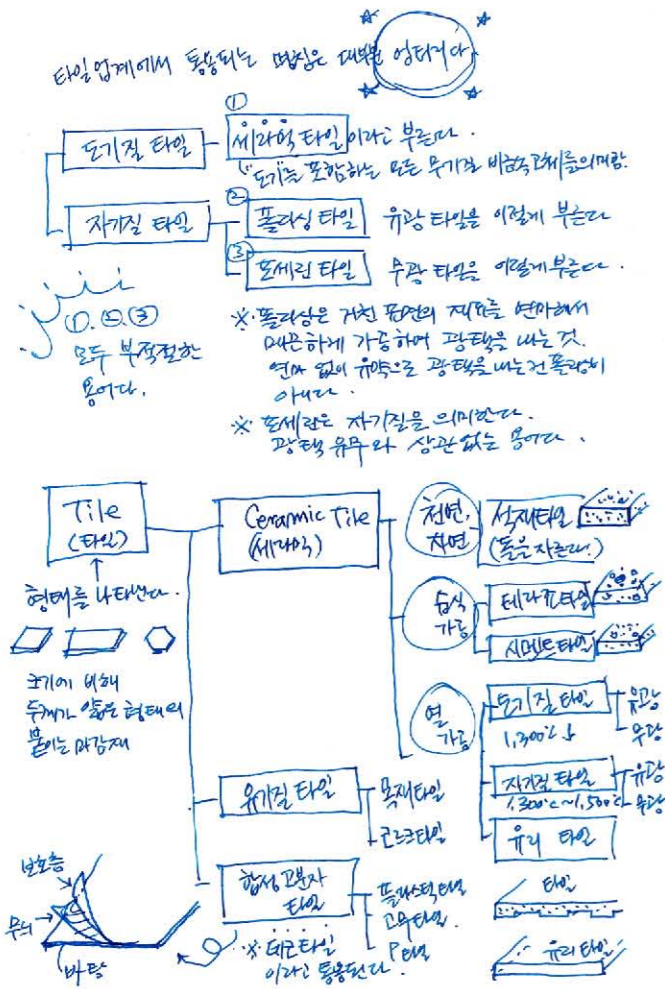 타일업계에서 통용되는 명칭은 대부분 엉터리다
①
도기질 타일
세라믹 타일 이라고 부른다.
"도기"를 포함하는 모든 무기질 비금속고체를의미함.
②
자기질 타일
폴리싱 타일 유광 타일을 이렇게 부른다
③
포세린 타일 무광 타일을 이렇게부른다.
①.②.③
모두 부적절한
용어다.
※ 폴리싱은 거친 표면의 재료를 연마해서
매끈하게 가공하여 광택을 내는 것.
연마 없이 유약으로 광택을 내는건 폴리싱이
아니다.
※ 포세린은 자기질을 의미한다.
광택 유무와 상관없는 용어다.
Tile
(타일)
형태를 나타낸다.
크기에 비해
두께가 얇은 형태의
붙이는 마감재
Ceramic Tile
(세라믹)
천연,
자연
석재타일
(돌을 자른다.)
습식
가공
테라쪼타일
시멘트타일
열
가공
도기질 타일
1,300℃↓
유광
무광
자기질 타일
1,300℃~1,500℃
유광
무광
유리 타일
유기질 타일
목재타일
코르크타일
합성고분자
타일
플라스틱타일
고무타일
P타일
※ 데코타일
이라고 통용된다.
보호층
무늬
바탕
타일
유리타일